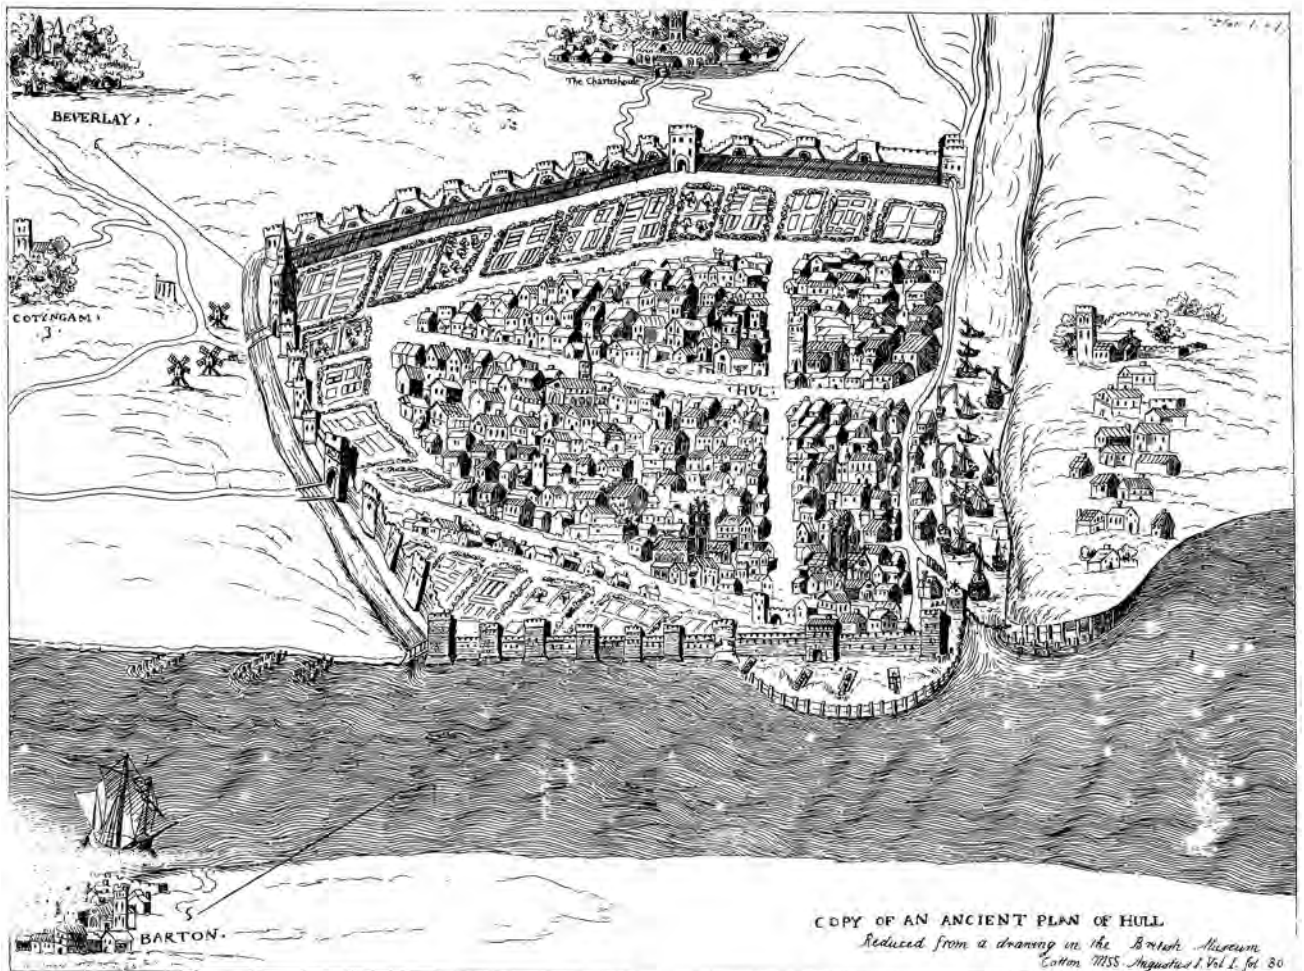 Plan 1.
The Charterhouse
BEVERLAY.
6
COTYNGAM.
3.
HUL.
BARTON.
5
COPY OF AN ANCIENT PLAN OF HULL
Reduced from a drawing in the British Museum
Cotton MSS. Augustus I. Vol I. fol 80